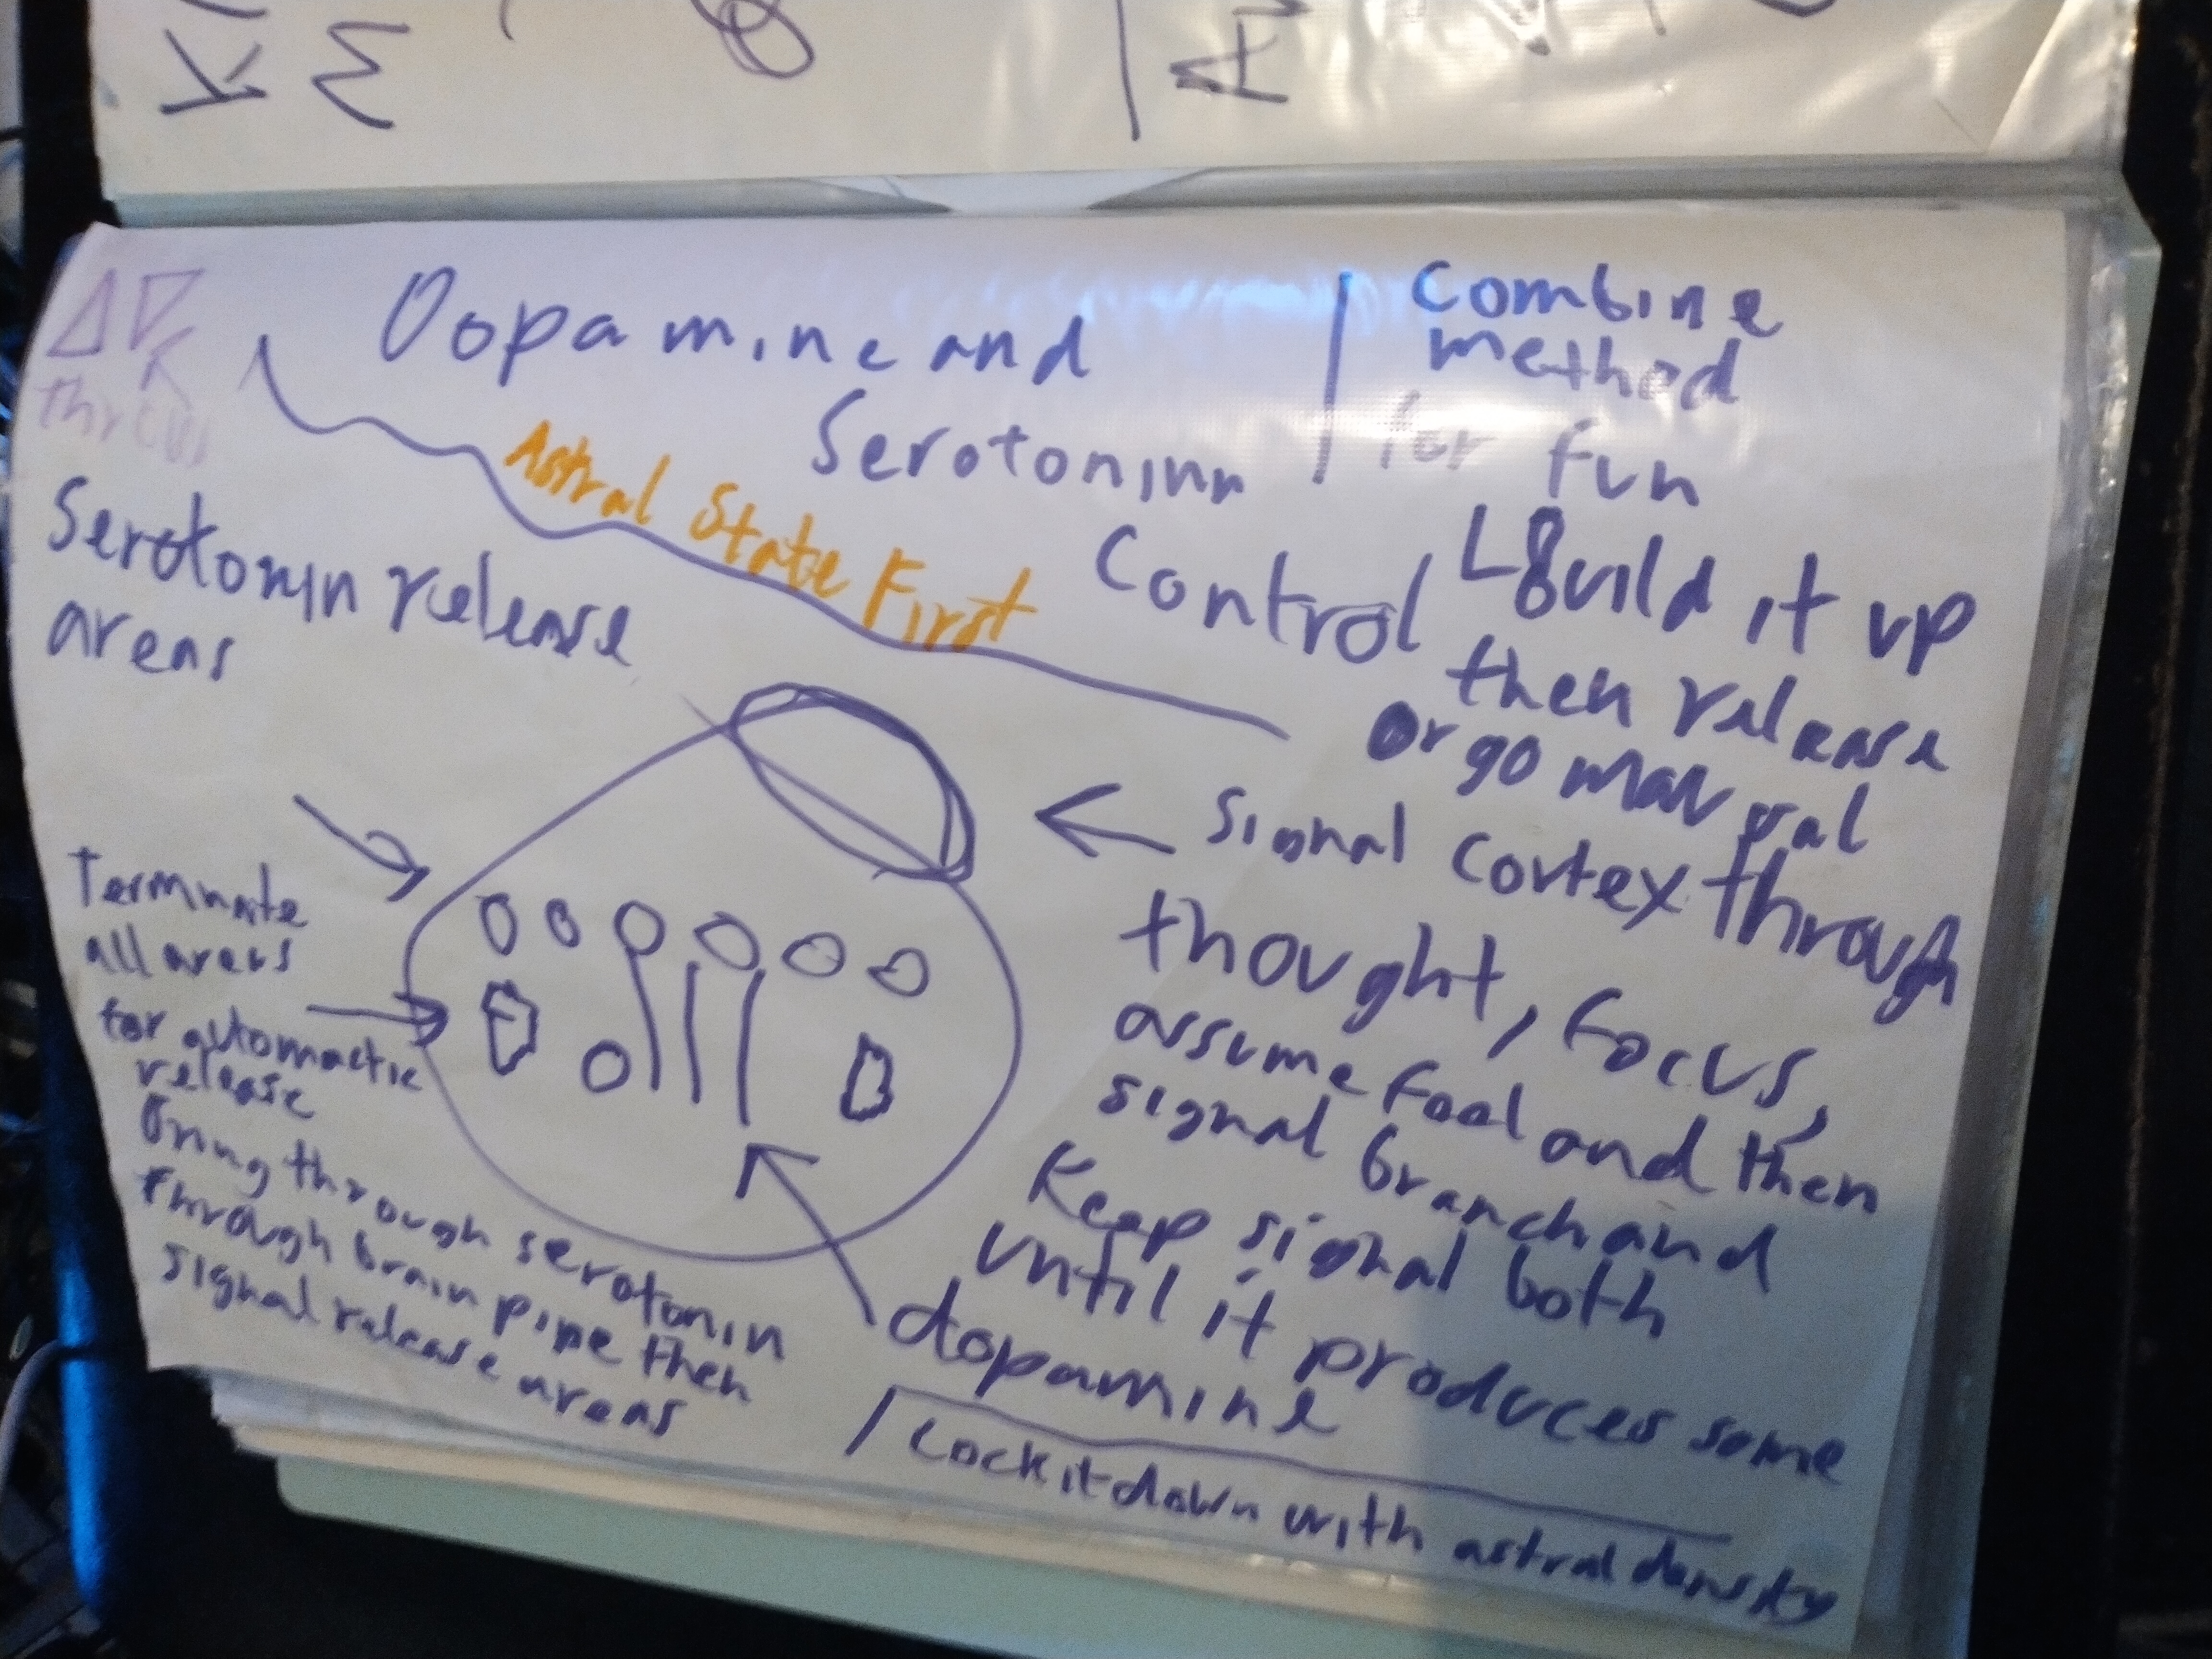 Dopamine and
Serotoninn
Control
Astral State First
Combine
method
for fun
Build it up
then release
or go manual
Serotonin release
areas
Signal Cortex through
thought, focus,
assume fool and then
signal branch and
Keep signal both
until it produces some
dopamine
Terminate
all areas
for automactic
release
Bring through serotonin
through brain pipe then
signal release areas
Lock it down with astral density